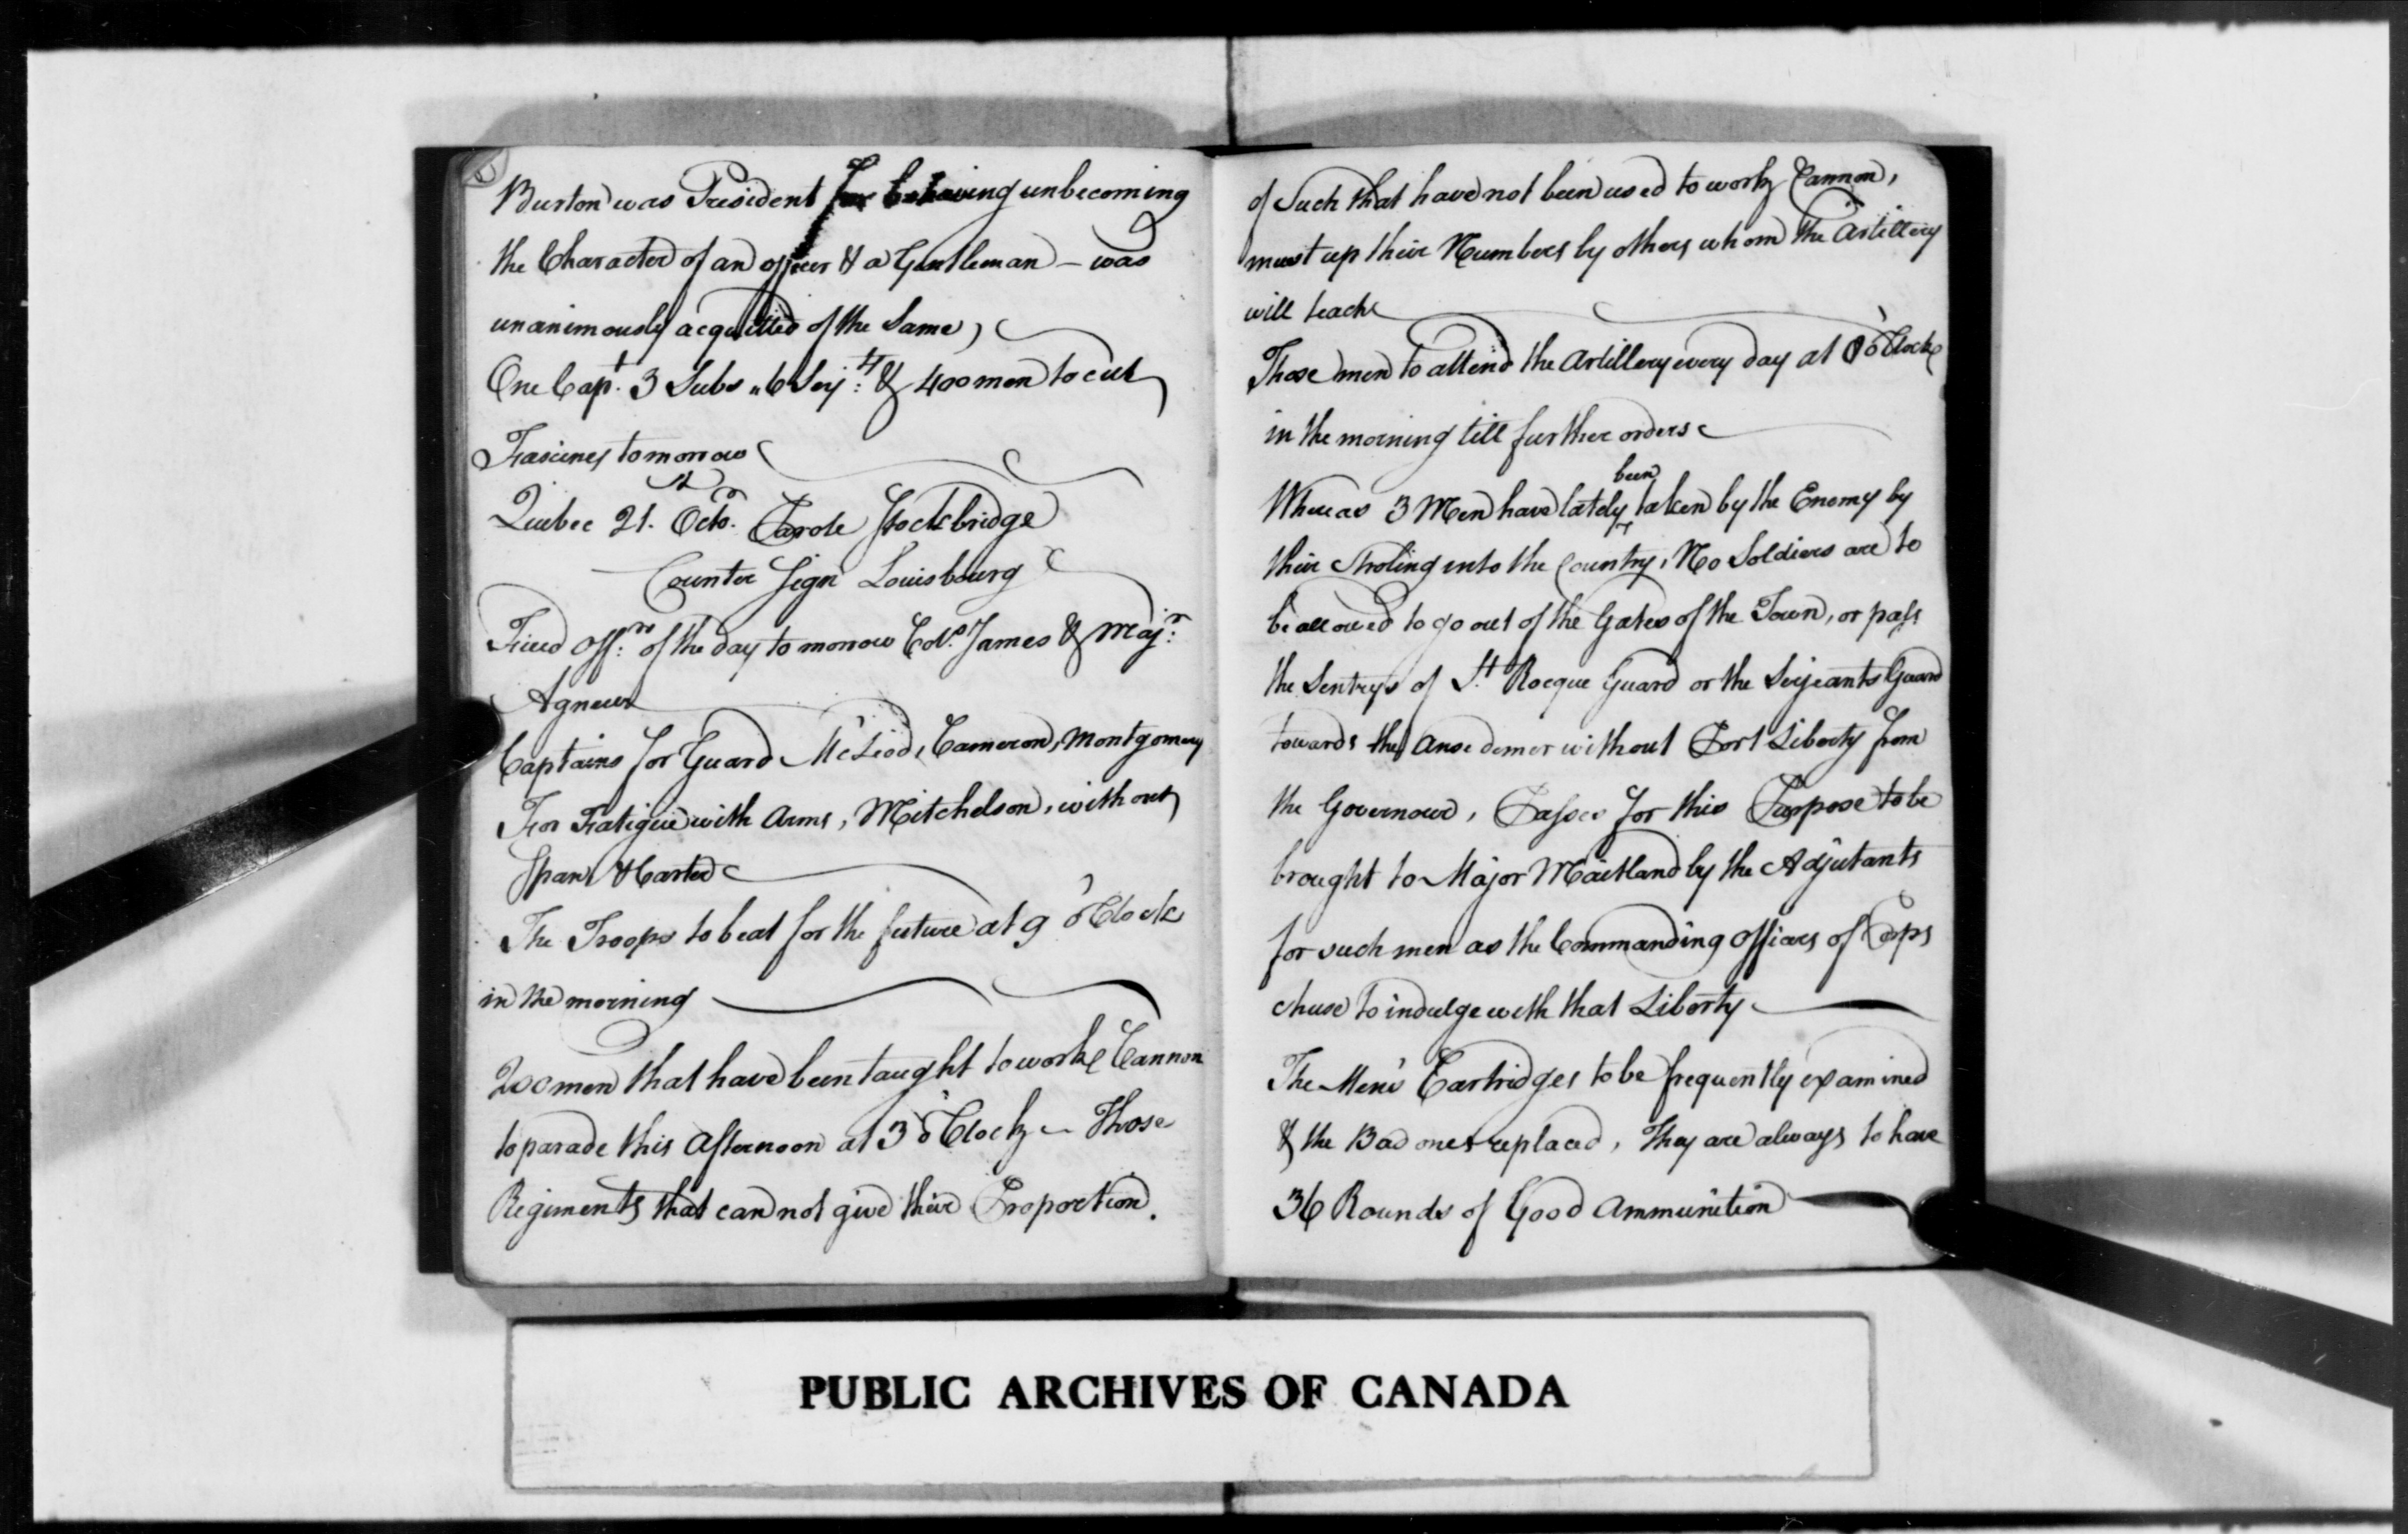 Burton was President for behaving unbecoming
the Character of an officer & a Gentleman – was
unanimously acquitted of the Same,
One Capt. 3 Subs „ 6 Serjts: & 400 men to cut
Fascines tomorrow
Quebec 21st. Octor. Parole Stockbridge
Counter Sign Louisbourg
Field Offrs: of the day tomorrow Colo. James & Majr:
Agnew
Captains for Guard McLeod, Cameron, Montgomery
For Fatigue with Arms, Mitchelson, without
Span & Carter
The Troops to beat for the future at 9 o'Clock
in the morning
200 men that have been taught to worke Cannon
to parade this Afternoon at 3 o'Clock – Those
Regiments that can not give their Proportion.
of Such that have not been used to work Cannon,
must up their Numbers by others whom the Artillery
will teach
Those men to attend the Artillery every day at o'Clock
in the morning till further orders
been
Whereas 3 Men have lately taken by the Enemy by
their Stroling into the Country, No Soldiers are to
be allowed to go out of the Gates of the Town, or pass
the Sentrys of St. Rocque Guard or the Serjeants Guard
towards the Anse demer without Port Liberty from
the Governour, Passes for this Purpose to be
brought to Major Maitland by the Adjutants
for such men as the Commanding Officers of Corps
chuse to indulge with that Liberty
The Men's Cartridges to be frequently examined
& the Bad ones replaced, They are always to have
36 Rounds of Good Ammunition
PUBLIC ARCHIVES OF CANADA